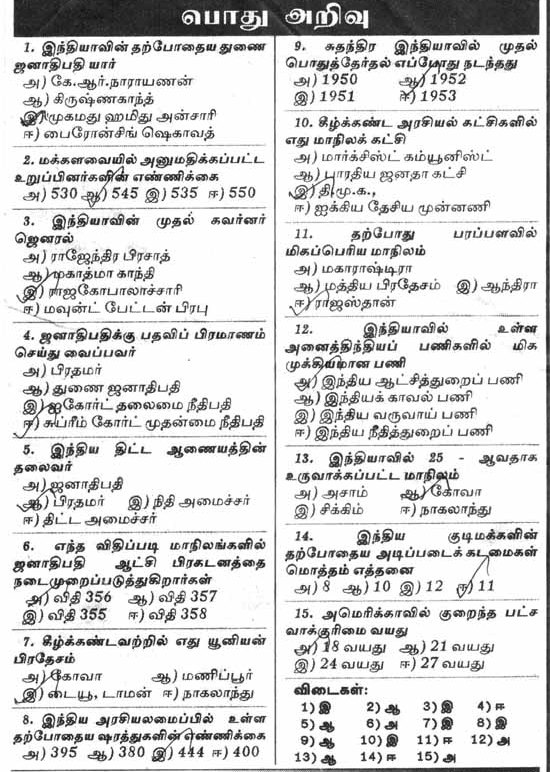 பொது அறிவு
1. இந்தியாவின் தற்போதைய துணை
ஜனாதிபதி யார்
அ) கே.ஆர்.நாராயணன்
ஆ) கிருஷ்ணகாந்த்
இ) முகமது ஹமிது அன்சாரி
ஈ) பைரோன்சிங் ஷெகாவத்
2. மக்களவையில் அனுமதிக்கப்பட்ட
உறுப்பினர்களின் எண்ணிக்கை
அ) 530 ஆ) 545 இ) 535 ஈ) 550
3. இந்தியாவின் முதல் கவர்னர்
ஜெனரல்
அ) ராஜேந்திர பிரசாத்
ஆ) மகாத்மா காந்தி
இ) ராஜகோபாலாச்சாரி
ஈ) மவுன்ட் பேட்டன் பிரபு
4. ஜனாதிபதிக்கு பதவிப் பிரமாணம்
செய்து வைப்பவர்
அ) பிரதமர்
ஆ) துணை ஜனாதிபதி
இ) ஐகோர்ட் தலைமை நீதிபதி
ஈ) சுப்ரீம் கோர்ட் முதன்மை நீதிபதி
5. இந்திய திட்ட ஆணையத்தின்
தலைவர்
அ) ஜனாதிபதி
ஆ) பிரதமர் இ) நிதி அமைச்சர்
ஈ) திட்ட அமைச்சர்
6. எந்த விதிப்படி மாநிலங்களில்
ஜனாதிபதி ஆட்சி பிரகடனத்தை
நடைமுறைப்படுத்துகிறார்கள்
அ) விதி 356 ஆ) விதி 357
இ) விதி 355 ஈ) விதி 358
7. கீழ்க்கண்டவற்றில் எது யூனியன்
பிரதேசம்
அ) கோவா ஆ) மணிப்பூர்
இ) டையூ, டாமன் ஈ) நாகலாந்து
8. இந்திய அரசியலமைப்பில் உள்ள
தற்போதைய ஷரத்துகளின் எண்ணிக்கை
அ) 395 ஆ) 380 இ) 444 ஈ) 400
9. சுதந்திர இந்தியாவில் முதல்
பொதுத்தேர்தல் எப்போது நடந்தது
அ) 1950 ஆ) 1952
இ) 1951 ஈ) 1953
10. கீழ்க்கண்ட அரசியல் கட்சிகளில்
எது மாநிலக் கட்சி
அ) மார்க்சிஸ்ட் கம்யூனிஸ்ட்
ஆ) பாரதிய ஜனதா கட்சி
இ) தி.மு.க.,
ஈ) ஐக்கிய தேசிய முன்னணி
11. தற்போது பரப்பளவில்
மிகப்பெரிய மாநிலம்
அ) மகாராஷ்டிரா
ஆ) மத்திய பிரதேசம் இ) ஆந்திரா
ஈ) ராஜஸ்தான்
12. இந்தியாவில் உள்ள
அனைத்திந்தியப் பணிகளில் மிக
முக்கியமான பணி
அ) இந்திய ஆட்சித்துறைப் பணி
ஆ) இந்தியக் காவல் பணி
இ) இந்திய வருவாய் பணி
ஈ) இந்திய நீதித்துறைப் பணி
13. இந்தியாவில் 25 - ஆவதாக
உருவாக்கப்பட்ட மாநிலம்
அ) அசாம் ஆ) கோவா
இ) சிக்கிம் ஈ) நாகலாந்து
14. இந்திய குடிமக்களின்
தற்போதைய அடிப்படைக் கடமைகள்
மொத்தம் எத்தனை
அ) 8 ஆ) 10 இ) 12 ஈ) 11
15. அமெரிக்காவில் குறைந்த பட்ச
வாக்குரிமை வயது
அ) 18 வயது ஆ) 21 வயது
இ) 24 வயது ஈ) 27 வயது
விடைகள்:
1) இ 2) ஆ 3) இ 4) ஈ
5) ஆ 6) அ 7) இ 8) இ
9) ஆ 10) இ 11) ஈ 12) அ
13) ஆ 14) ஈ 15) அ